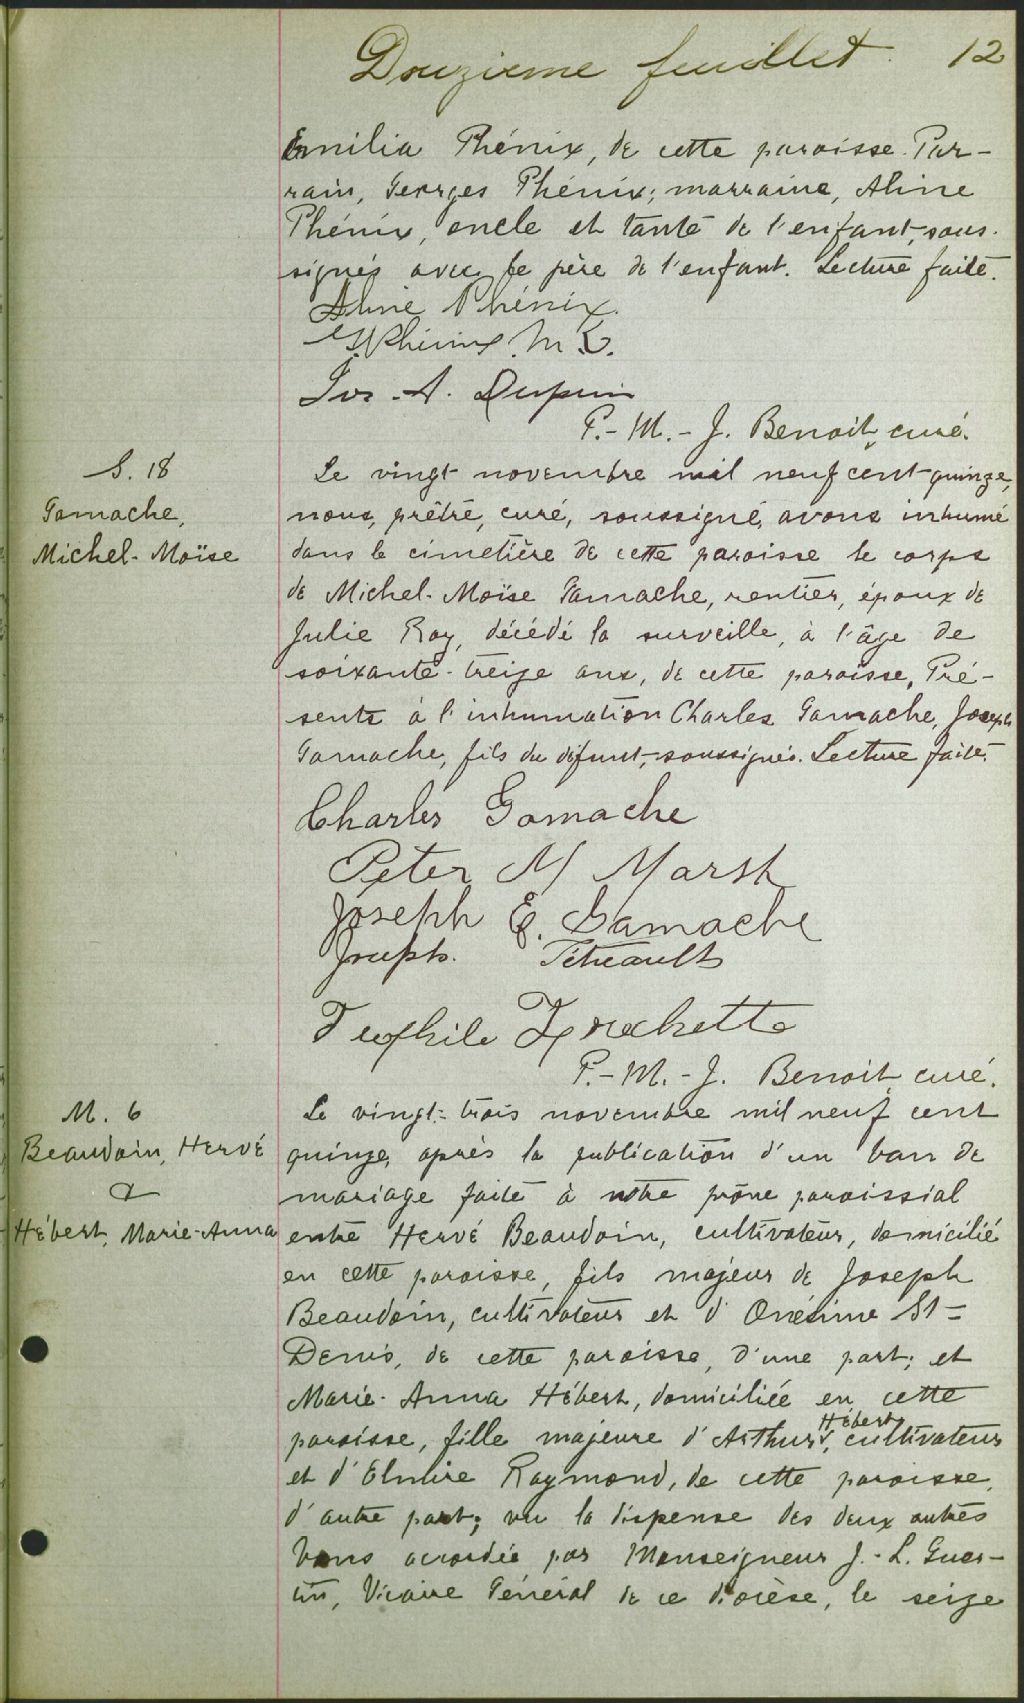 Douzième feuillet 12
Emilia Phénix, de cette paroisse. Par-
rain, Georges Phénix; marraine, Aline
Phénix, oncle et tante de l'enfant, sous-
signés avec le père de l'enfant. Lecture faite.
Aline Phénix.
G. Phénix M.D.
Jos. A. Dupuis
P.-M.-J. Benoit, curé.
S. 18
Gamache,
Michel-Moïse
Le vingt novembre mil neuf cent quinze,
nous, prêtre, curé, soussigné, avons inhumé
dans le cimetière de cette paroisse le corps
de Michel-Moïse Gamache, rentier, époux de
Julie Roy, décédé la surveille, à l'âge de
soixante-treize ans, de cette paroisse. Pré-
sents à l'inhumation Charles Gamache, Joseph
Gamache, fils du défunt, soussignés. Lecture faite.
Charles Gamache
Peter M Marsh
Joseph E. Gamache
Joseph Tétreault
Teofhile Frechette
P.-M.-J. Benoit, curé.
M. 6
Beaudoin, Hervé
&
Hébert, Marie-Anna
Le vingt-trois novembre mil neuf cent
quinze, après la publication d'un ban de
mariage faite à notre prône paroissial
entre Hervé Beaudoin, cultivateur, domicilié
en cette paroisse, fils majeur de Joseph
Beaudoin, cultivateur et d'Onésime St-
Denis, de cette paroisse, d'une part; et
Marie-Anna Hébert, domiciliée en cette
paroisse, fille majeure d'Arthur Hébert, cultivateur
et d'Elmire Raymond, de cette paroisse,
d'autre part; vu la dispense des deux autres
bans accordée par Monseigneur J.-L. Guer-
tin, Vicaire Général de ce diocèse, le seize